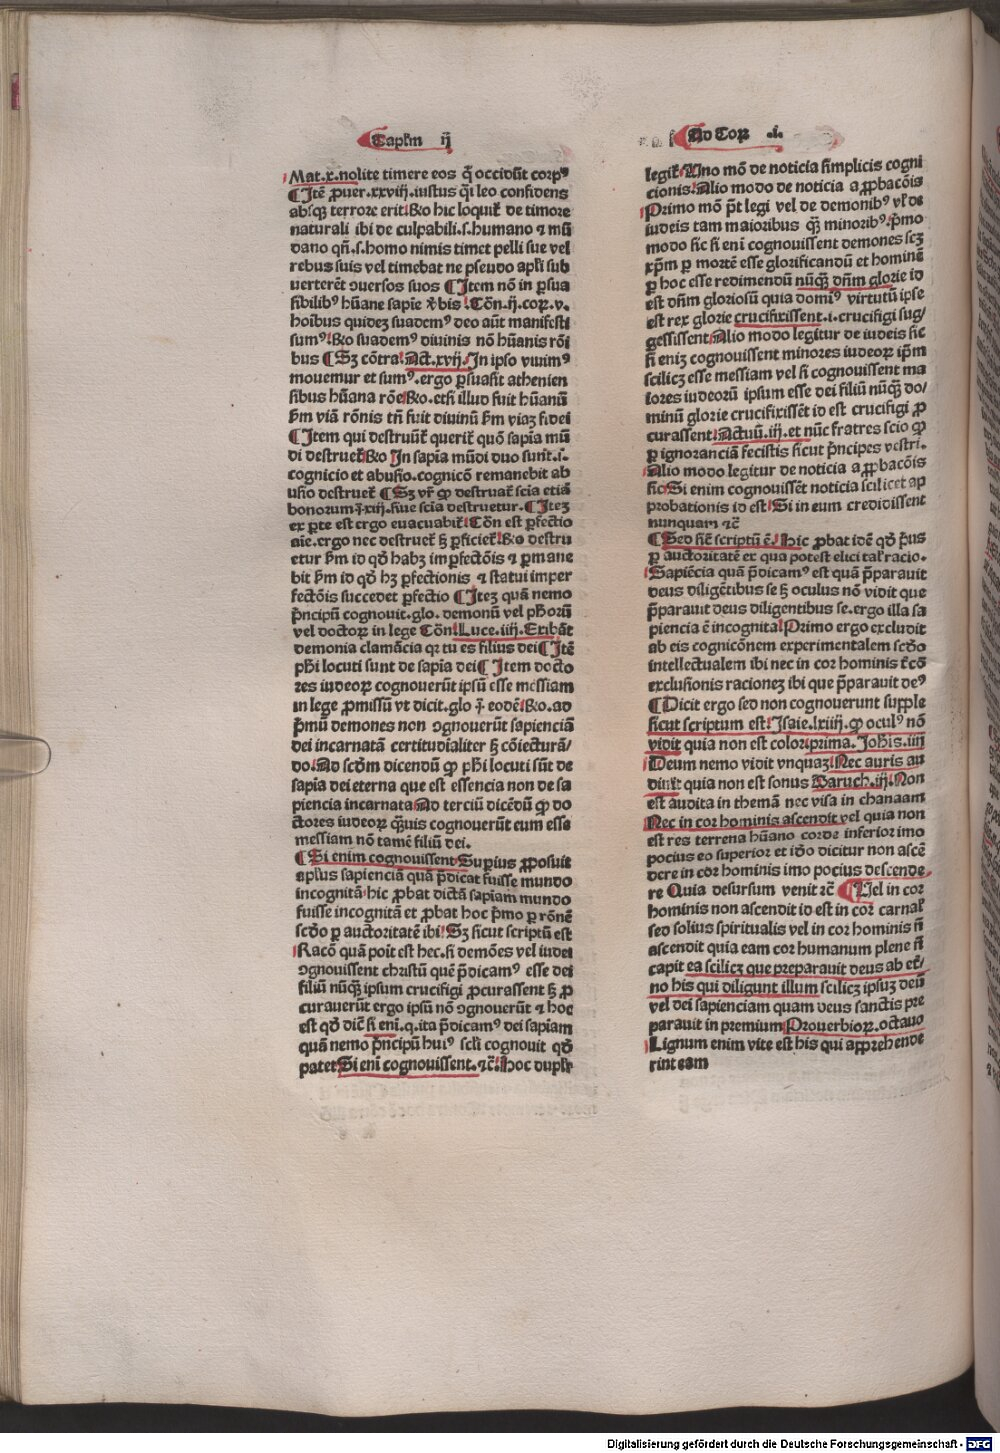 Capl'm ij
Mat.x.nolite timere eos q̄ occidūt corpꝰ
¶ Itē ꝓuer.xxviij.iustus q̄i leo confidens
absqꝫ terrore erit. Rō hic loquit̄ de timore
naturali ibi de culpabili.s.humano ⁊ mū
dano qn̄.s.homo nimis timet pelli sue vel
rebus suis vel timebat ne pseudo apl'i sub
uerterēt ↄuersos suos ¶ Item nō in ꝑsua
sibilibꝰ hūane sapīe v̄bis. Cōn.ij.coꝝ.v.
hoībus quidez suademꝰ deo aūt manifesti
sumꝰ. Rō suademꝰ diuinis nō hūanis rōi
bus ¶ Sꝫ cōtra. Act.xvij. In ipso viuimꝰ
mouemur et sumꝰ.ergo ꝑsuasit athenien
sibus hūana rōe. Rō.etsi illud fuit hūanū
ẜm viā rōnis tn̄ fuit diuinū ẜm viaꝫ fidei
¶ Item qui destruūt̄ querit̄ quō sapīa mū
di destruet̄. Rō In sapīa mūdi duo sunt.s.
cognicio et abusio.cognicō remanebit ab
usio destruet̄ ¶ Sꝫ vr̄ ꝙ destruat̄ scīa etiā
bonorum j.xiij.siue scīa destruetur. ¶ Iteꝫ
ex ꝑte est ergo euacuabit̄. Cōn est ꝑfectio
aīe.ergo nec destruet̄ sꝫ ꝑficiet̄. Rō destru
etur ẜm id qd̄ habꝫ imꝑfectōis ⁊ ꝑmane
bit ẜm id qd̄ hꝫ ꝑfectionis ⁊ statui imper
fectōis succedet ꝑfectio ¶ Iteꝫ quā nemo
p̄ncipū cognouit.glo.demonū vel ph'orū
vel doctoꝝ in lege Cōn. Luce.iiij. Exibāt
demonia clamācia qꝛ tu es filius dei ¶ Itē
ph'i locuti sunt de sapīa dei ¶ Item docto
res iudeoꝝ cognouerūt ipsū esse messiam
in lege ꝓmissū vt dicit.glo j̄ eodē. Rō.ad
p̄mū demones non ↄgnouerūt sapienciā
dei incarnatā certitudialiter sꝫ cōiecturā/
do. Ad scd̄m dicendū ꝙ ph'i locuti sūt de
sapīa dei eterna que est essencia non de sa
piencia incarnata Ad terciū dicēdū ꝙ do
ctores iudeoꝝ qꝫuis cognouerūt eum esse
messiam nō tamē filiū dei.
¶ Si enim cognouissent. Suꝑius ꝓposuit
aplus sapienciā quā p̄dicat fuisse mundo
incognitā.hic ꝓbat dictā sapīam mundo
fuisse incognitā et ꝓbat hoc p̄mo ꝑ rōnē
scd̄o ꝑ auctoritatē ibi. Sꝫ sicut scriptū est
Racō quā poīt est hec.si demōes vel iudei
ↄgnouissent christū quē p̄dicamꝰ esse dei
filiū nūqꝫ ipsum crucifigi ꝓcurassent sꝫ ꝓ
curauerūt ergo ipsū nō ↄgnouerūt ⁊ hoc
est qd̄ dic̄ si enī.q.ita p̄dicamꝰ dei sapīam
quā nemo p̄ncipū huiꝰ scl'i cognouit qd̄
patet Si enī cognouissent.⁊c̄. Hoc duplr̄
Ad Coꝝ .i.
legit̄. Uno mō de noticia simplicis cogni
cionis. Alio modo de noticia aꝓpbacōis
Primo mō p̄t legi vel de demonibꝰ vl' de
iudeis tam maioribus qꝫ minoribꝰ. p̄mo
modo sic si enī cognouissent demones scꝫ
xp̄m ꝑ mortē esse glorificandū et hominē
ꝑ hoc esse redimendū nūqꝫ dn̄m glorie id
est dn̄m gloriosū quia domīꝰ virtutū ipse
est rex glorie crucifixissent.i.crucifigi sug/
gessissent. Alio modo legitur de iudeis sic
si eniꝫ cognouissent minores iudeoꝝ ip̄m
scilicꝫ esse messiam vel si cognouissent ma
iores iudeorū ipsum esse dei filiū nūqꝫ do/
minū glorie crucifixissēt id est crucifigi ꝓ
curassent. Actuū.iij.et nūc fratres scio ꝙ
ꝑ ignoranciā fecistis sicut p̄ncipes vestri.
Alio modo legitur de noticia aꝓpbacōis
sic. Si enim cognouissēt noticia scilicet ap
probationis id est. Si in eum credidissent
nunquam ⁊c̄
¶ Sed sic̄ scriptū ē. Hic ꝓbat idē qd̄ p̄us
ꝑ auctoritatē ex qua potest elici tal' racio.
Sapiēcia quā p̄dicamꝰ est quā p̄parauit
deus diligētibus se sꝫ oculus nō vidit que
p̄parauit deus diligentibus se.ergo illa sa
piencia ē incognita. Primo ergo excludit
ab eis cognicōnem experimentalem scd̄o
intellectualem ibi nec in cor hominis t̄cō
exclusionis racioneꝫ ibi que p̄parauit deꝰ
¶ Dicit ergo sed non cognouerunt supple
sicut scriptum est. Isaie.lxiiij.ꝙ oculꝰ nō
vidit quia non est color.prima. Joh'is.iiij
Deum nemo vidit vnquaꝫ. Nec auris au
diuit quia non est sonus Baruch.iij. Non
est audita in themā nec visa in chanaam
Nec in cor hominis ascendit vel quia non
est res terrena hūano corde inferior imo
pocius eo superior et id̄o dicitur non ascē
dere in cor hominis imo pocius descende
re Quia desursum venit ⁊c̄ ¶ Uel in cor
hominis non ascendit id est in cor carnal'
sed solius spiritualis vel in cor hominis n̄
ascendit quia eam cor humanum plene n̄
capit ea scilicꝫ que preparauit deus ab et̄/
no his qui diligunt illum scilicꝫ ipsuꝫ deū
vel dei sapienciam quam deus sanctis pre
parauit in premium Prouerbioꝝ.octauo
Lignum enim vite est his qui apprehende
rint eam
Digitalisierung gefördert durch die Deutsche Forschungsgemeinschaft - DFG